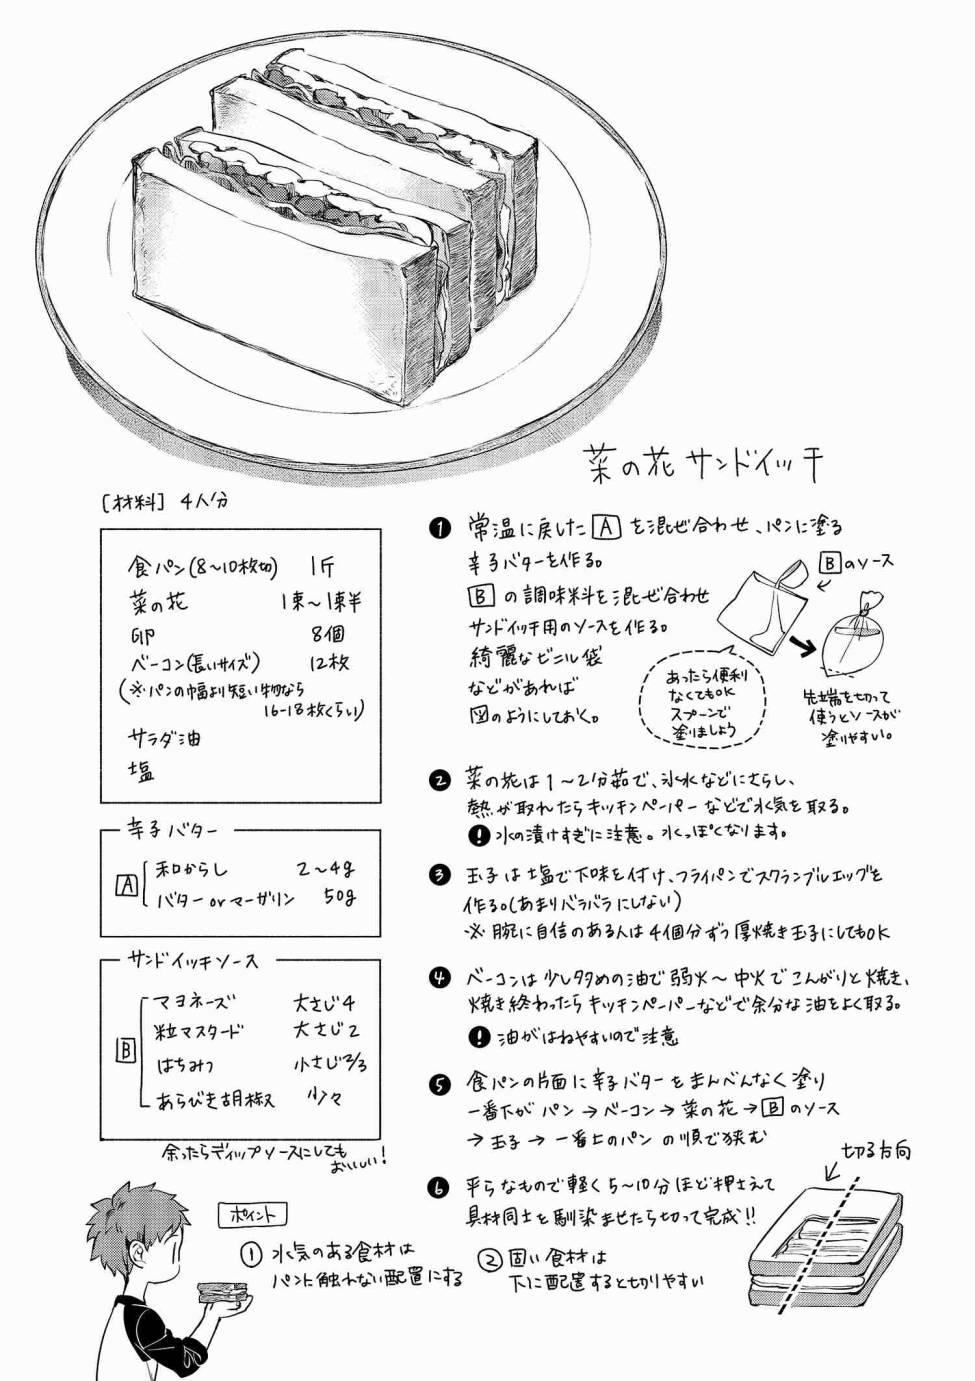 菜の花サンドイッチ
[材料] 4人分
食パン(8〜10枚切) 1斤
菜の花 1束〜1束半
卵 8個
ベーコン(長いサイズ) 12枚
(※パンの幅より短い物なら
16-18枚くらい)
サラダ油
塩
辛子バター
A
和からし 2〜4g
バターorマーガリン 50g
サンドイッチソース
B
マヨネーズ 大さじ4
粒マスタード 大さじ2
はちみつ 小さじ2/3
あらびき胡椒 少々
余ったらディップソースにしても
おいしい!
❶ 常温に戻した A を混ぜ合わせ、パンに塗る
辛子バターを作る。
B の調味料を混ぜ合わせ
サンドイッチ用のソースを作る。
綺麗なビニル袋
などがあれば
図のようにしておく。
Bのソース
あったら便利
なくてもOK
スプーンで
塗りましょう
先端を切って
使うとソースが
塗りやすい。
❷ 菜の花は1〜2分茹で、氷水などにさらし、
熱が取れたらキッチンペーパーなどで水気を取る。
! 水の漬けすぎに注意。水っぽくなります。
❸ 玉子は塩で下味を付け、フライパンでスクランブルエッグを
作る。(あまりバラバラにしない)
※腕に自信のある人は4個分ずつ厚焼き玉子にしてもOK
❹ ベーコンは少し多めの油で弱火〜中火でこんがりと焼き、
焼き終わったらキッチンペーパーなどで余分な油をよく取る。
! 油がはねやすいので注意
❺ 食パンの片面に辛子バターをまんべんなく塗り
一番下がパン→ベーコン→菜の花→Bのソース
→玉子→一番上のパン の順で挟む
❻ 平らなもので軽く5〜10分ほど押さえて
具材同士を馴染ませたら切って完成!!
切る方向
ポイント
① 水気のある食材は
パンに触れない配置にする
② 固い食材は
下に配置すると切りやすい